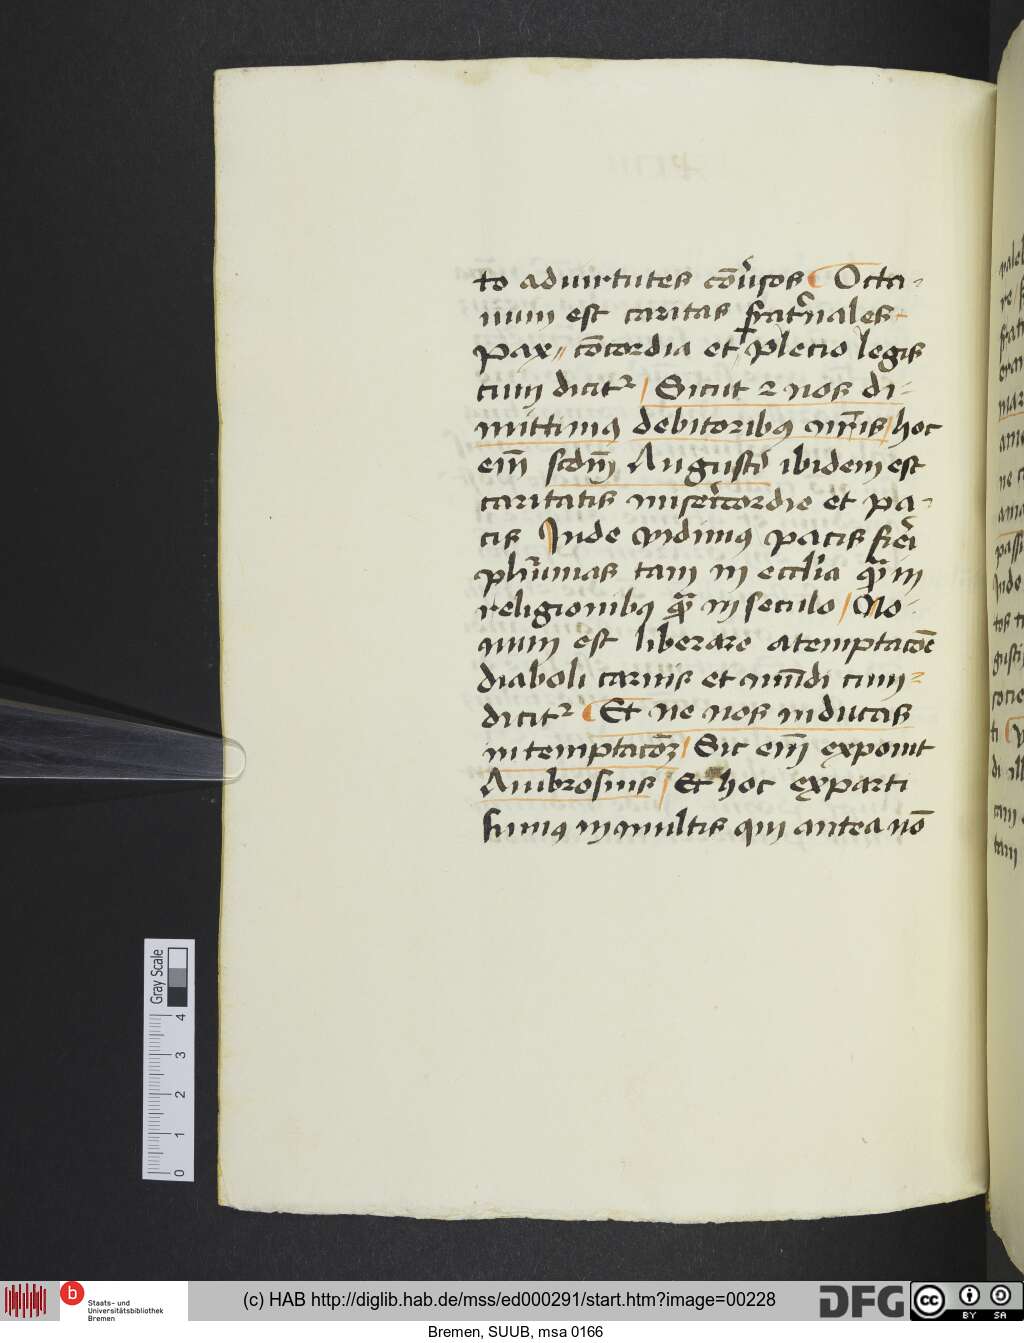 to ad uirtutes cōu͛sos Octa-
uum est caritas frat͛nales
pax cōcordia et plecio legis
cum dicit᷑ Sicut ⁊ nos di-
mittimus debitoribꝰ nr̄is hoc
em̄ scdm̄ Augusti ibidem est
caritatis mise͛icordie et pa-
cis Inde vidimus pacis fie͛i
plu͛imas tam in eccl̄ia qᷓ in
religionibꝰ qᷓ in seculo No-
num est liberare a temptacōe
diaboli carnis et mūdi cum
dicit᷑ Et ne nos inducas
in temptacōꝫ Sic em̄ exponit
Ambrosius Et hoc experti
sumꝰ in multis qui antea nō
Gray Scale
0 1 2 3 4
b
Staats- und
Universitätsbibliothek
Bremen
(c) HAB http://diglib.hab.de/mss/ed000291/start.htm?image=00228
DFG
cc BY SA
Bremen, SUUB, msa 0166